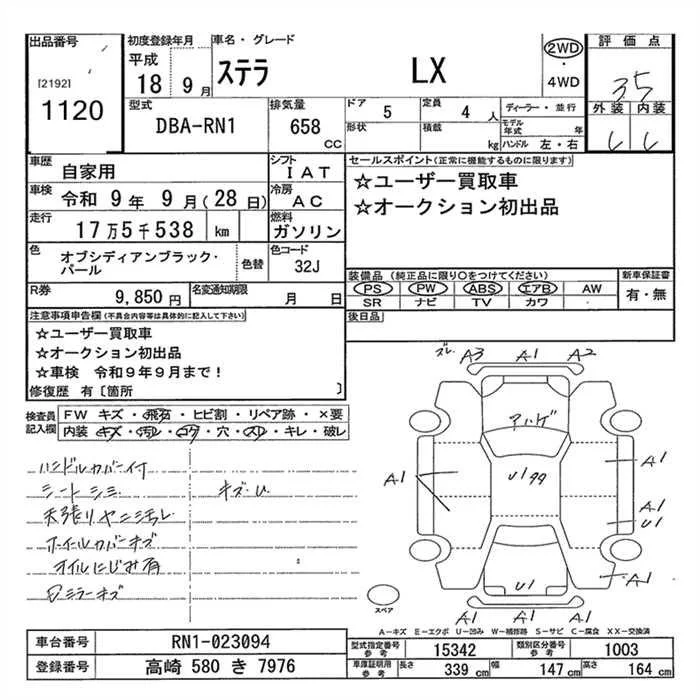 出品番号 初度登録年月 車名・グレード 評価点
[2192] 平成 18 9月 ステラ LX 2WD ・ 4WD 3.5
1120 外装 内装
型式 排気量 ドア 5 定員 4人 ディーラー・並行
DBA-RN1 658 CC 形状 積載 kg モデル年式 年 ハンドル 左・右
車歴 自家用 シフト IAT セールスポイント(正常に機能するものに限ります)
車検 令和 9年 9月(28日) 冷房 AC ☆ユーザー買取車
走行 17万5千538 km 燃料 ガソリン ☆オークション初出品
色 オブシディアンブラック・パール 色替 色コード 32J
装備品(純正品に限り○をつけてください) 新車保証書
PS PW ABS エアB AW 有・無
SR ナビ TV カワ ・
R券 9,850円 名変通知期限 月 日 後日品
注意事項申告欄(不具合内容等は具体的に記入して下さい)
☆ユーザー買取車
☆オークション初出品
☆車検 令和9年9月まで!
修復歴 有〔箇所 〕
検査員記入欄 FW キズ・飛石・ヒビ割・リペア跡・×要
内装・キズ・汚レ・コゲ・穴・スレ・キレ・破レ
ハンドルカバー付
シートシミ キズ・U
天張りヤニ汚レ
ホイールカバーキズ
オイルにじみ有
ズレ A3 A1 A2
アハゲ
A1 U1 99 A1
A1
U1
U1 A1
A1 A1
スペア
A-キズ E-エクボ U-凹み W-補修跡 S-サビ C-腐食 XX-交換済
車台番号 RN1-023094 型式指定番号 参考 15342 類別区分番号 参考 1003
登録番号 高崎 580 き 7976 車庫証明用 参考 長さ 339 cm 幅 147 cm 高さ 164 cm